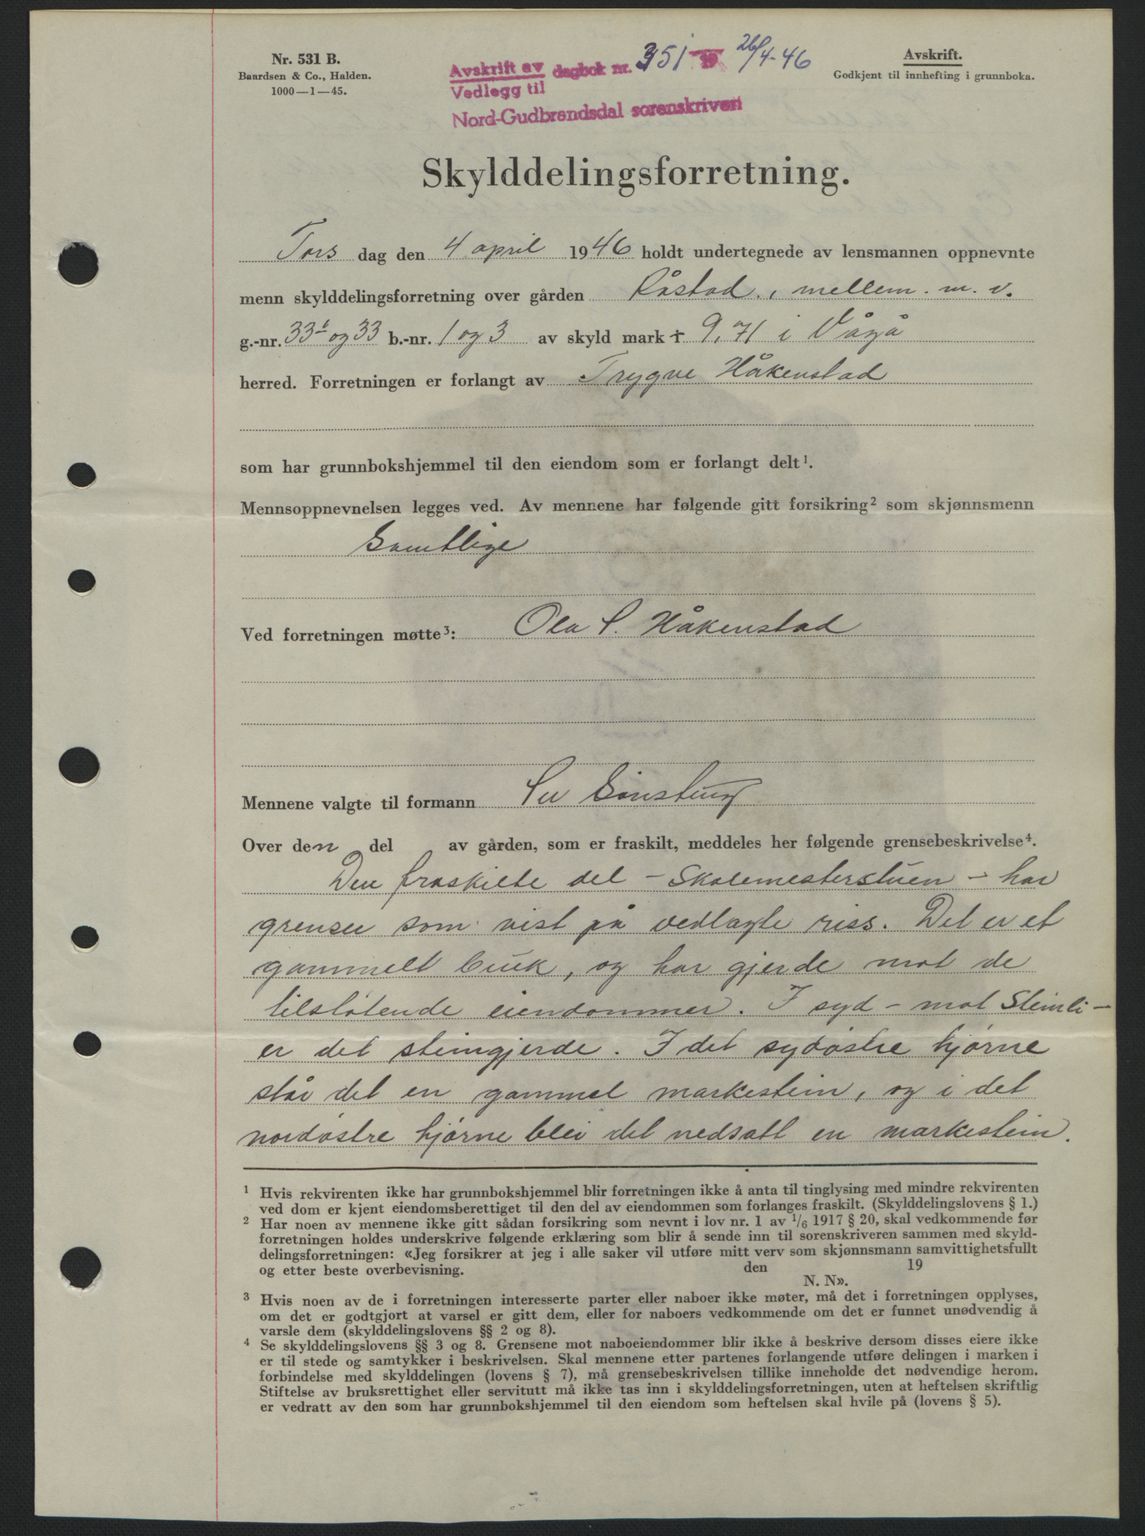 Nr. 531 B.
Baardsen & Co., Halden.
1000—1—45.
Avskrift av dagbok nr. 351 19 26/4-46
Vedlegg til
Nord-Gudbrandsdal sorenskriveri
Avskrift.
Godkjent til innhefting i grunnboka.
Skylddelingsforretning.
Tors dag den 4 april 1946 holdt undertegnede av lensmannen oppnevnte
menn skylddelingsforretning over gården Råstad, mellem. m. v.
g.-nr. 33 og 33 b.-nr. 1 og 3 av skyld mark 9,71 i Vågå
herred. Forretningen er forlangt av Trygve Håkenstad
som har grunnbokshjemmel til den eiendom som er forlangt delt¹.
Mennsoppnevnelsen legges ved. Av mennene har følgende gitt forsikring² som skjønnsmenn
Samtlige
Ved forretningen møtte³: Ola S. Håkenstad
Mennene valgte til formann
Over den del av gården, som er fraskilt, meddeles her følgende grensebeskrivelse⁴.
Den fraskilte del - Skolemesterstuen - har
grenser som vist på vedlagte riss. Det er et
gammelt bruk, og har gjerde mot de
tilstøtende eiendommer. I syd - mot Steinli -
er det steingjerde. I det sydøstre hjørne
står det en gammel markestein, og i det
nordøstre hjørne blei det nedsatt en markestein.
¹ Hvis rekvirenten ikke har grunnbokshjemmel blir forretningen ikke å anta til tinglysing med mindre rekvirenten
ved dom er kjent eiendomsberettiget til den del av eiendommen som forlanges fraskilt. (Skylddelingslovens § 1.)
² Har noen av mennene ikke gitt sådan forsikring som nevnt i lov nr. 1 av 1/6 1917 § 20, skal vedkommende før
forretningen holdes underskrive følgende erklæring som blir å sende inn til sorenskriveren sammen med skyld-
delingsforretningen: «Jeg forsikrer at jeg i alle saker vil utføre mitt verv som skjønnsmann samvittighetsfullt
og etter beste overbevisning. den 19
N. N».
³ Hvis noen av de i forretningen interesserte parter eller naboer ikke møter, må det i forretningen opplyses,
om det er godtgjort at varsel er gitt dem, eller for naboers vedkommende om det er funnet unødvendig å
varsle dem (skylddelingslovens §§ 2 og 8).
⁴ Se skylddelingslovens §§ 3 og 8. Grensene mot naboeiendommer blir ikke å beskrive dersom disses eiere ikke
er til stede og samtykker i beskrivelsen. Skal mennene etter partenes forlangende utføre delingen i marken i
forbindelse med skylddelingen (lovens § 7), må grensebeskrivelsen tillike inneholde det nødvendige herom.
Stiftelse av bruksrettighet eller servitutt må ikke tas inn i skylddelingsforretningen, uten at heftelsen skriftlig
er vedratt av den som har grunnbokshjemmel til den eiendom som heftelsen skal hvile på (lovens § 5).